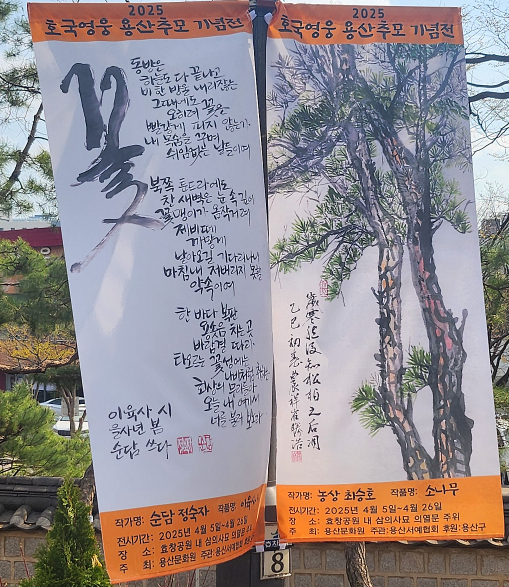 2025
호국영웅 용산추모 기념전
꽃
동방은
하늘도 다 끝나고
비 한 방울 내리잖는
그때에도
오히려 꽃은
빨갛게 피지 않는가
내 목숨을 꾸며
쉬임없는 날이여
북쪽 툰드라에도
찬 새벽은 눈 속 깊이
꽃 맹아리가 옴작거려
제비떼
까맣게
날아오길 기다리나니
마침내 저버리지 못할
약속이여
한 바다 복판
용솟음 치는 곳
바람결 따라
타오르는 꽃성에는
나비처럼 취하는
회상의 무리들아
오늘 내 여기서
너를 불러 보노라
이육사 시
을사년 봄
순담 쓰다
작가명: 순담 정숙자 작품명: 이육사
전시기간: 2025년 4월 5일~4월 26일
장 소: 효창공원 내 삼의사묘 의열문
주 최: 용산문화원 주관:용산서예협회
2025
호국영웅 용산추모 기념전
歲寒然後知松柏之後凋
乙巳 初春
작가명: 농상 최승호 작품명: 소나무
전시기간: 2025년 4월 5일~4월 26일
장 소: 효창공원 내 삼의사묘 의열문 주위
주 최: 용산문화원 주관:용산서예협회 후원:용산구
8